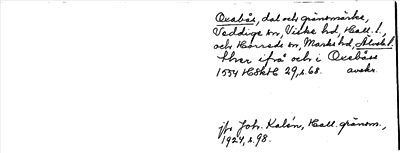 Oxabås, dal och gränsmärke,
Veddige sn, Viske hd, Hall. l.,
och Horreds sn, Marks hd, Älvsb. l.
thr ifrå och i Oxebåss
1554 HSKH 29, s. 68. avskr.
jfr Joh. Kalén, Hall. gränsm.,
1924, s. 98.